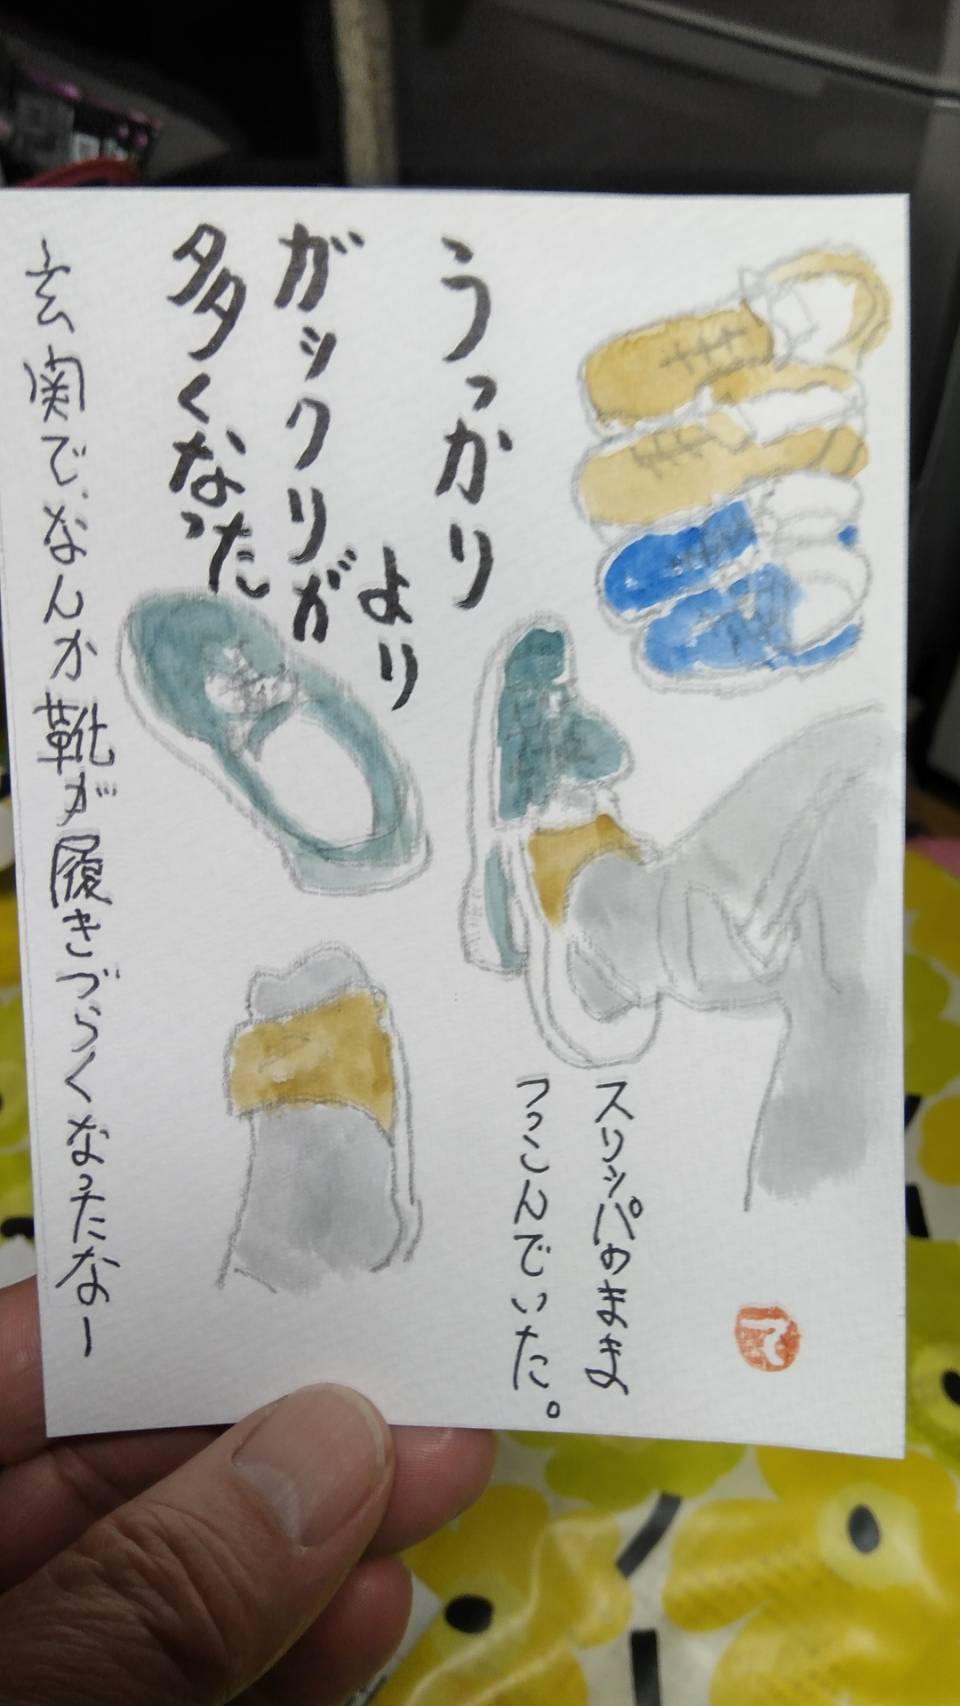 うっかり
より
ガックリが
多くなった
玄関でなんか靴が履きづらくなったなー
スリッパのまま
つっこんでいた。